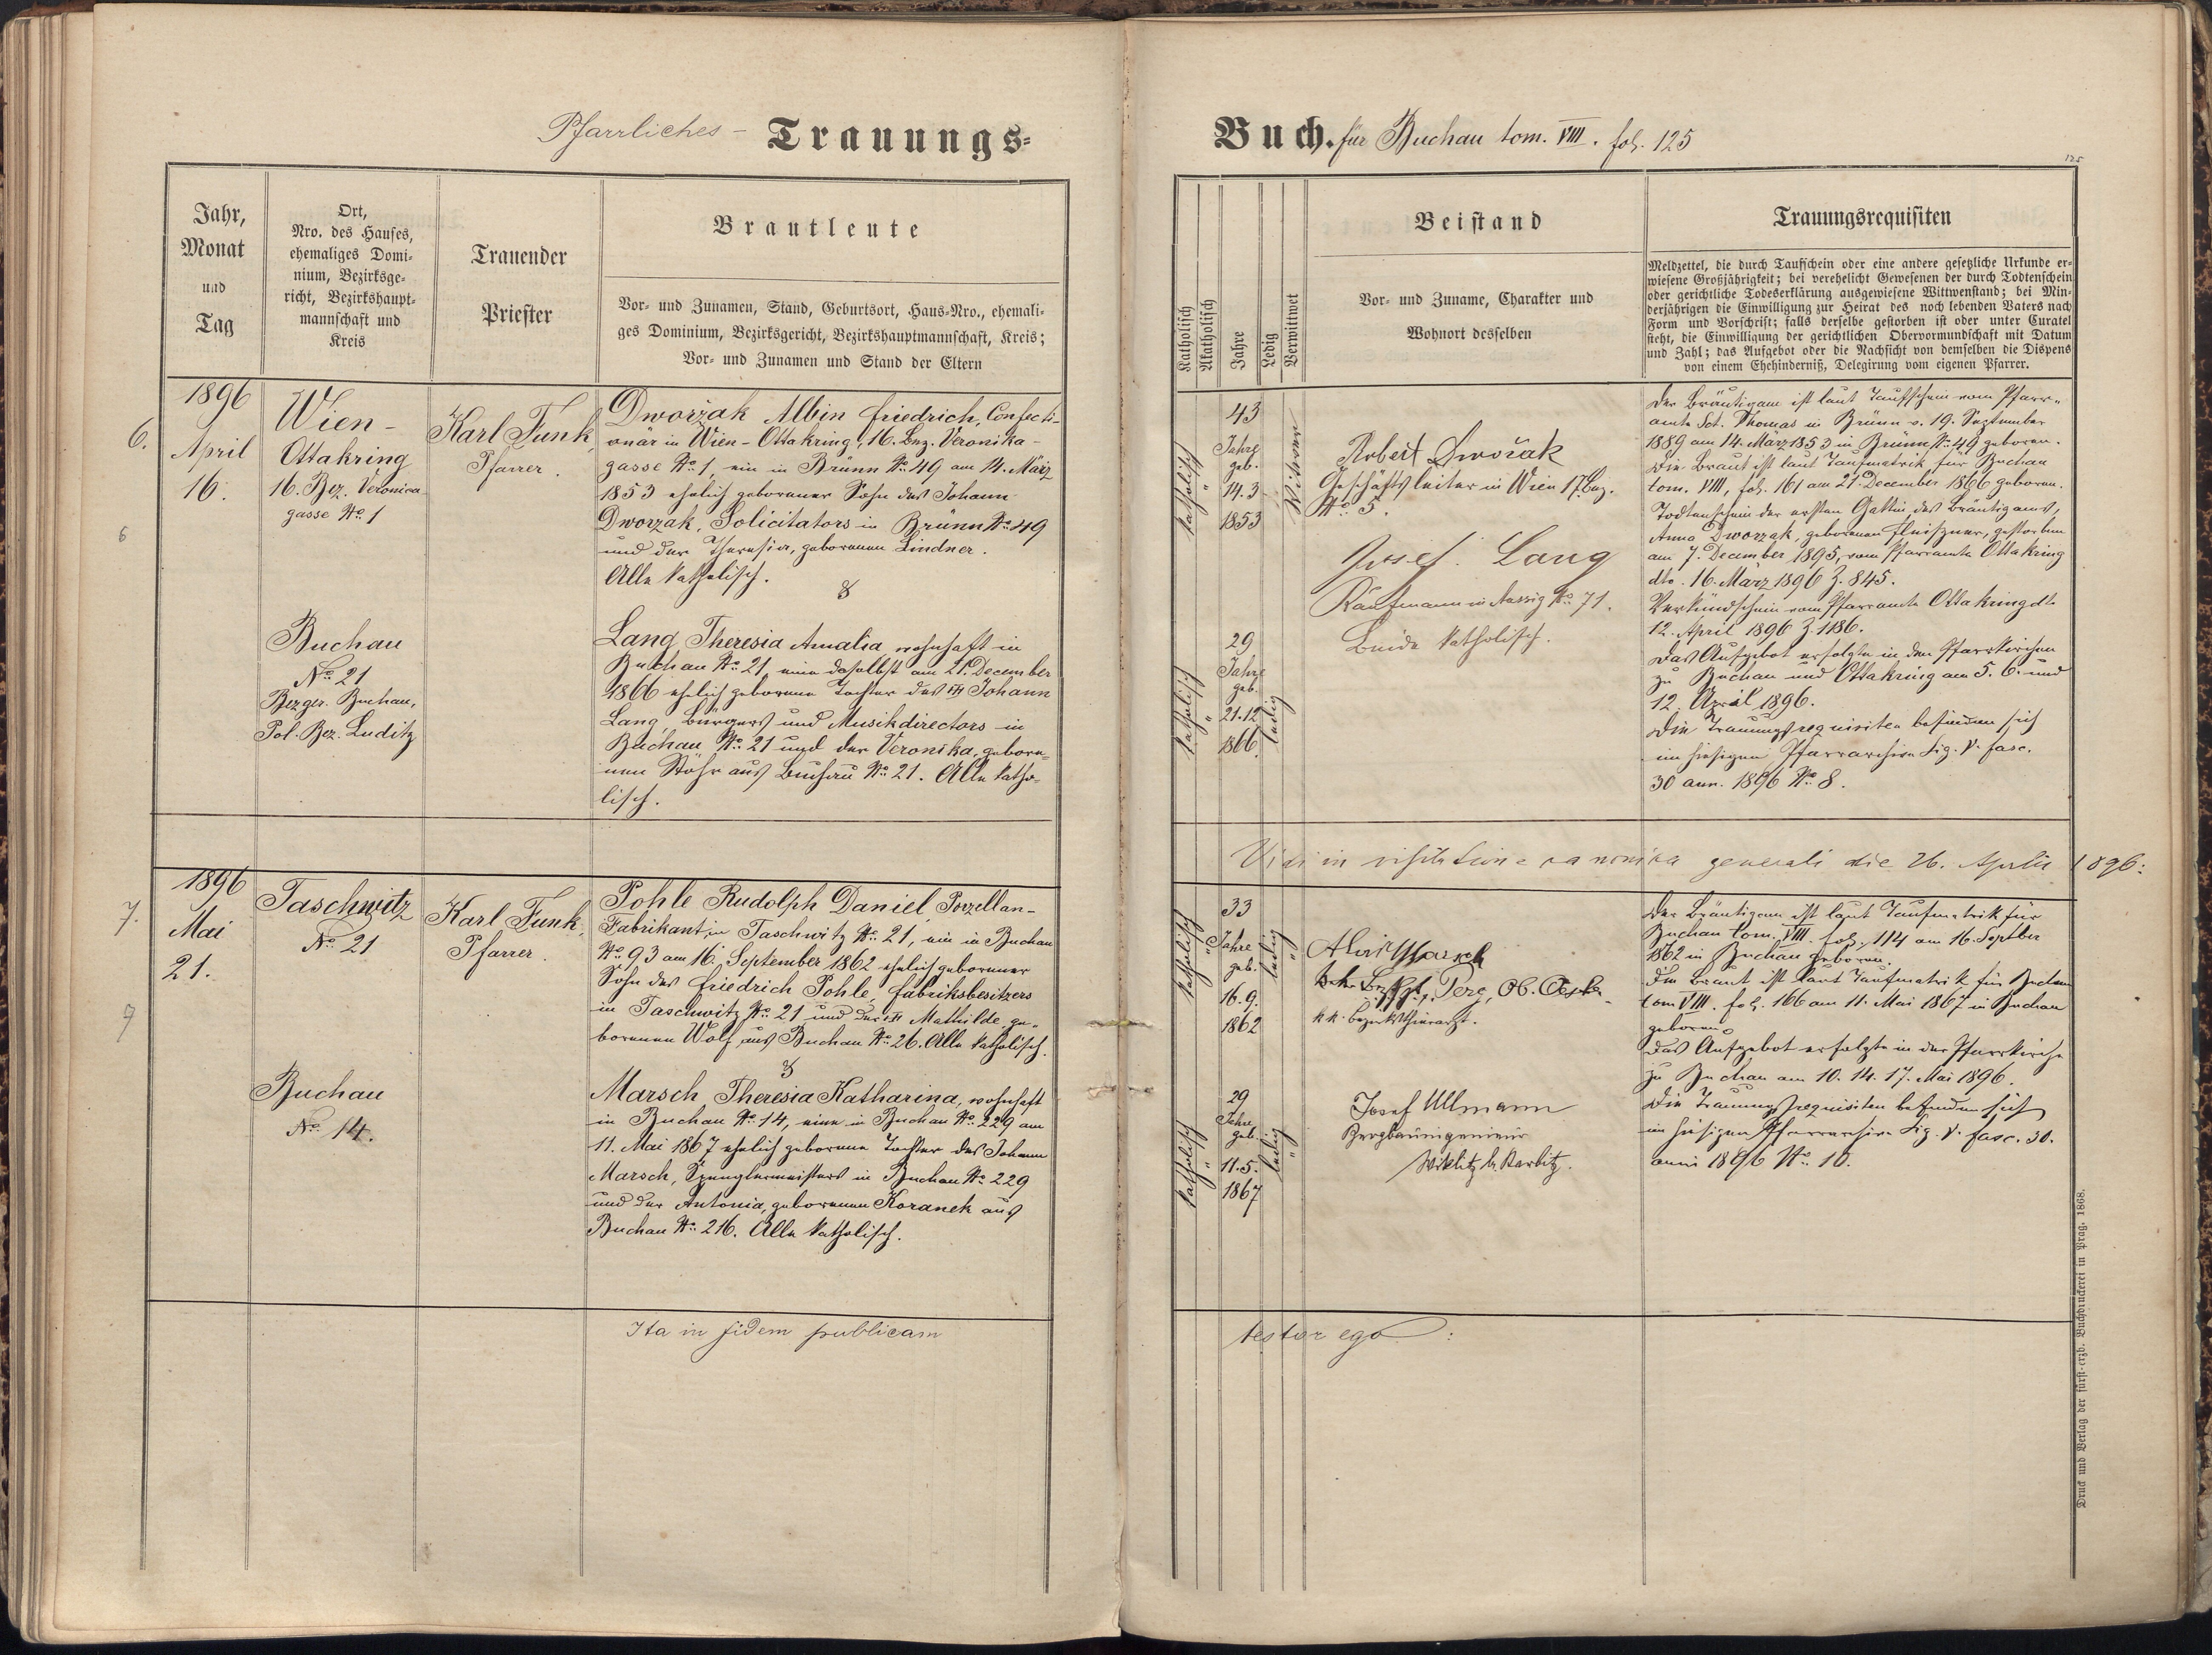 Pfarrliches - Trauungs-
Jahr,
Monat
und
Tag
Ort,
Nro. des Hauses,
ehemaliges Domi-
nium, Bezirksge-
richt, Bezirkshaupt-
mannschaft und
Kreis
Trauender
Priester
Brautleute
Vor- und Zunamen, Stand, Geburtsort, Haus-Nro., ehemali-
ges Dominium, Bezirksgericht, Bezirkshauptmannschaft, Kreis;
Vor- und Zunamen und Stand der Eltern
6.
6
1896
April
16.
Wien -
Ottakring
16. Bez. Veronica
gasse No. 1
Karl Funk,
Pfarrer.
Dworzak Albin Friedrich, Confecti-
onär in Wien - Ottakring, 16. Bez. Veronika-
gasse No. 1, ein in Brünn No. 49 am 14. März
1853 ehelich geborener Sohn des Johann
Dworzak, Solicitators in Brünn No. 49
und der Theresia, geborenen Lindner.
Alle katholisch.
&
Buchau
No. 21
Bezger. Buchau,
Pol. Bez. Luditz
Lang Theresia Amalia, wohnhaft in
Buchau No. 21, eine daselbst am 21. December
1866 ehelich geborene Tochter des Johann
Lang, Bürgers und Musikdirectors in
Buchau No. 21 und der Veronika, gebore-
nen Stöhr aus Buchau No. 21. Alle katho-
lisch.
7.
9
1896
Mai
21.
Taschwitz
No. 21
Karl Funk,
Pfarrer.
Pohle Rudolph Daniel, Porzellan-
Fabrikant in Taschwitz No. 21, ein in Buchau
No. 93 am 16. September 1862 ehelich geborener
Sohn des Friedrich Pohle, Fabriksbesitzers
in Taschwitz No. 21 und der Mathilde, ge-
borenen Wolf aus Buchau No. 26. Alle katholisch.
&
Buchau
No. 14.
Marsch Theresia Katharina, wohnhaft
in Buchau No. 14, eine in Buchau No. 229 am
11. Mai 1867 ehelich geborene Tochter des Johann
Marsch, Spenglermeisters in Buchau No. 229
und der Antonia, geborenen Koranek aus
Buchau No. 216. Alle katholisch.
Ita in fidem publicam
Buch. für Buchau tom. VIII. fol. 125
125
Katholisch
Akatholisch
Jahre
Ledig
Verwittwet
Beistand
Vor- und Zuname, Charakter und
Wohnort desselben
Trauungsrequisiten
Meldzettel, die durch Taufschein oder eine andere gesetzliche Urkunde er-
wiesene Großjährigkeit; bei verehelicht Gewesenen der durch Todtenschein
oder gerichtliche Todeserklärung ausgewiesene Wittwenstand; bei Min-
derjährigen die Einwilligung zur Heirat des noch lebenden Vaters nach
Form und Vorschrift; falls derselbe gestorben ist oder unter Curatel
steht, die Einwilligung der gerichtlichen Obervormundschaft mit Datum
und Zahl; das Aufgebot oder die Nachsicht von demselben die Dispens
von einem Ehehinderniß, Delegirung vom eigenen Pfarrer.
katholisch
"
43
Jahre
geb.
14.3.
1853
Witwer
Robert Dwořak
Geschäftsleiter in Wien 17. Bez.
No. 5.
Josef Lang
Kaufmann in Aussig No. 71.
Beide katholisch.
katholisch
"
29
Jahre
geb.
21.12.
1866.
ledig
Der Bräutigam ist laut Taufschein vom Pfarr-
amte Sct. Thomas in Brünn v. 19. September
1889 am 14. März 1853 in Brünn No. 49 geboren.
Die Braut ist laut Taufmatrik für Buchau
tom. VIII, fol. 161 am 21. December 1866 geboren.
Todtenschein der ersten Gattin des Bräutigams,
Anna Dworzak, geborenen, gestorben
am 7. December 1895, vom Pfarramte Ottakring
dto. 16. März 1896 Z. 845.
Verkündschein vom Pfarramte Ottakring dto
12. April 1896 Z. 1186.
Das Aufgebot erfolgte in den Pfarrkirchen
zu Buchau und Ottakring am 5. 6. und
12. April 1896.
Die Trauungsrequisiten befinden sich
im hiesigen Pfarrarchive Sig. V. fasc.
30 ann. 1896 No. 8.
Vidi in visitatione canonica generali die 26. Aprilis 1896:
katholisch
"
33
Jahre
geb.
16.9.
1862
ledig
"
Marsch
k.k. Bezirksthierarzt.
katholisch
"
29
Jahre
geb.
11.5.
1867
ledig
"
Josef Ullmann
Bergbauingenieur
Wiklitz b. Karbitz.
Der Bräutigam ist laut Taufmatrik für
Buchau tom. VIII. fol. 114 am 16. Septber
1862 in Buchau geboren.
Die Braut ist laut Taufmatrik für Buchau
tom VIII. fol. 166 am 11. Mai 1867 in Buchau
geboren.
Das Aufgebot erfolgte in der Pfarrkirche
zu Buchau am 10. 14. 17. Mai 1896.
Die Trauungsrequisiten befinden sich
im hiesigen Pfarrarchive Sig. V. fasc. 30.
anni 1896 No. 10.
testor ego:
Druck und Verlag der fürst-erzb. Buchdruckerei in Prag. 1868.